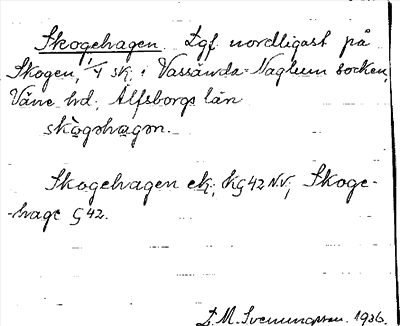 Skogehagen. Lgf. nordligast på
Skogen, 1/4 sk. i Vassända-Naglum socken,
Väne hd, Älfsborgs län
skògəhagən.
Skogehagen ek. KG42 N.V., Skoge-
-hage G42.
D. M. Svenungsson. 1936.